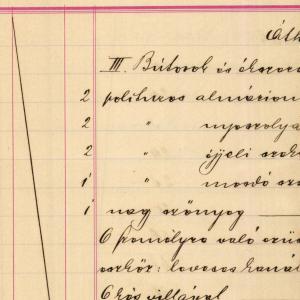 Áth
III. Bútorok és ékszere
2 politúros almáriom
2 " nyoszolya
2 " éjjeli szek
1 " mosdó sz
1 nagy szőnyeg
6 személyre való
eszköz: leveses kanál
6 kés villával